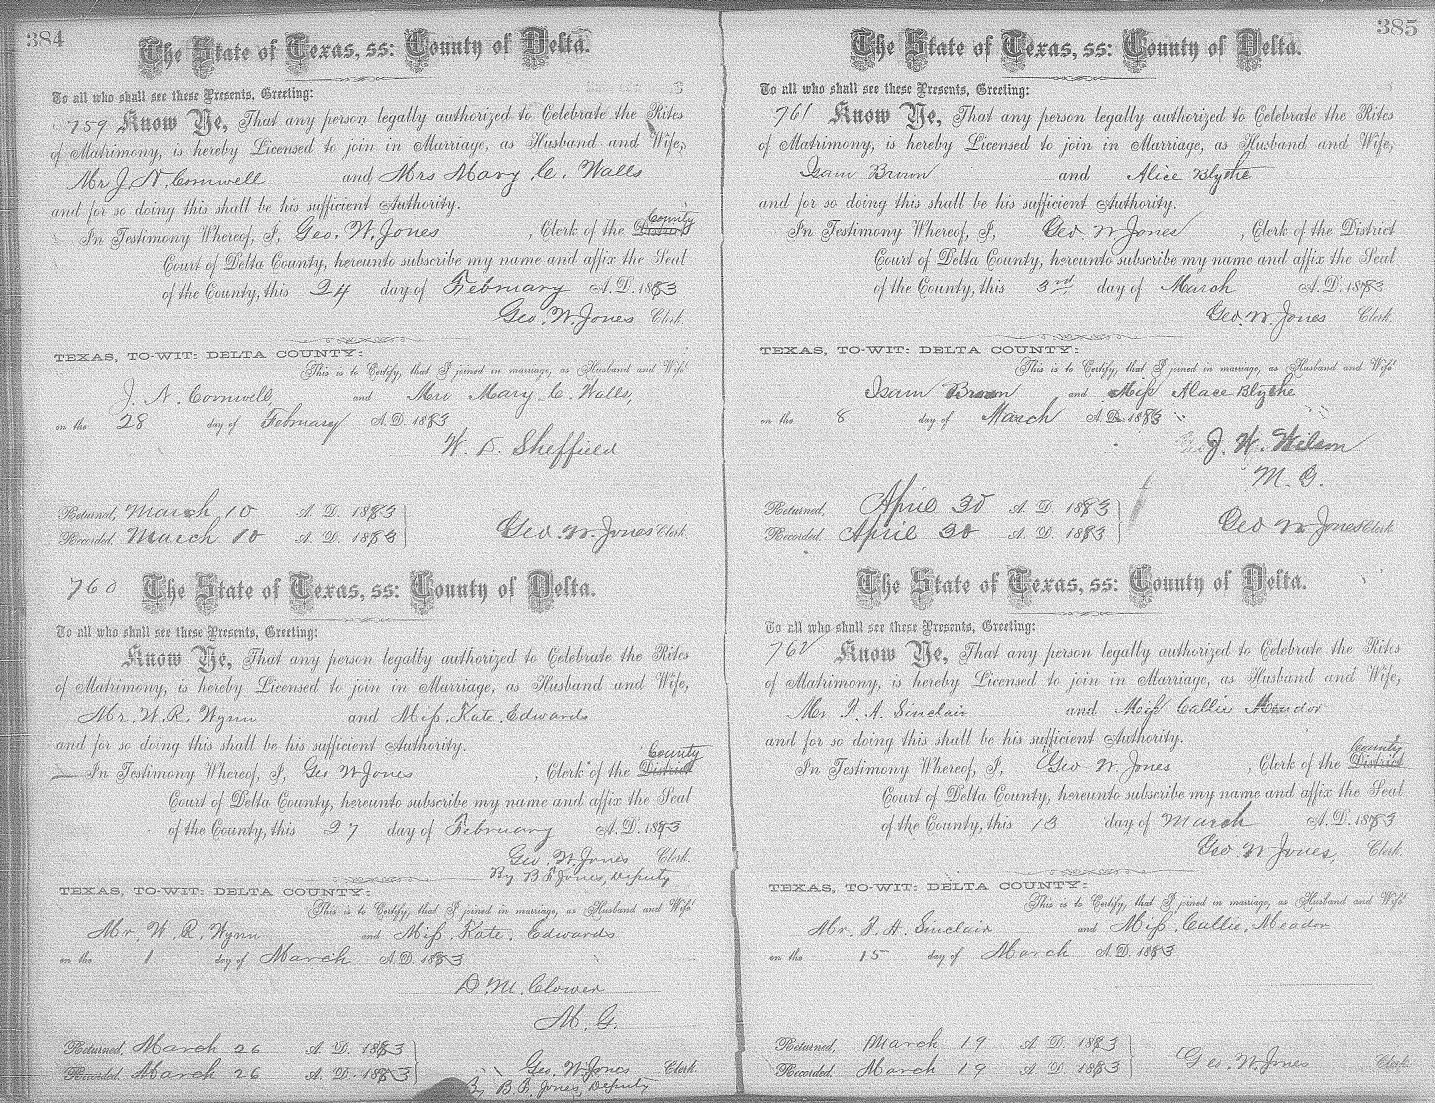 384
The State of Texas, ss: County of Delta.
To all who shall see these Presents, Greeting:
759 Know Ye, That any person legally authorized to Celebrate the Rites
of Matrimony, is hereby Licensed to join in Marriage, as Husband and Wife,
Mr J. N. Cornwell and Mrs Mary C. Walls
and for so doing this shall be his sufficient Authority.
County
In Testimony Whereof, I, Geo. W. Jones, Clerk of the District
Court of Delta County, hereunto subscribe my name and affix the Seal
of the County, this 24 day of February A. D. 1883
Geo. W. Jones Clerk.
TEXAS, TO-WIT: DELTA COUNTY:
This is to Certify, that I joined in marriage, as Husband and Wife
J. N. Cornwell, and Mrs Mary C. Walls,
on the 28 day of February A. D. 1883
Sheffield
Returned, March 10 A. D. 1883
Recorded. March 10 A. D. 1883
Geo. W. Jones Clerk.
760 The State of Texas, ss: County of Delta.
To all who shall see these Presents, Greeting:
Know Ye, That any person legally authorized to Celebrate the Rites
of Matrimony, is hereby Licensed to join in Marriage, as Husband and Wife,
Mr. W. R. Wynn and Miss. Kate. Edwards
and for so doing this shall be his sufficient Authority.
County
In Testimony Whereof, I, Geo W Jones, Clerk of the District
Court of Delta County, hereunto subscribe my name and affix the Seal
of the County, this 27 day of February A. D. 1883
Geo. W. Jones Clerk.
By Jones, Deputy
TEXAS, TO-WIT: DELTA COUNTY:
This is to Certify, that I joined in marriage, as Husband and Wife
Mr. W. R. Wynn and Miss. Kate. Edwards
on the 1 day of March A. D. 1883
Clower
M. G.
Returned, March 26 A. D. 1883
Recorded. March 26 A. D. 1883
Geo. W. Jones Clerk
By Jones, Deputy
385
The State of Texas, ss: County of Delta.
To all who shall see these Presents, Greeting:
761 Know Ye, That any person legally authorized to Celebrate the Rites
of Matrimony, is hereby Licensed to join in Marriage, as Husband and Wife,
Isam Brown and Alice Blythe
and for so doing this shall be his sufficient Authority.
In Testimony Whereof, I, Geo. W Jones, Clerk of the District
Court of Delta County, hereunto subscribe my name and affix the Seal
of the County, this 3rd day of March A. D. 1883
Geo. W. Jones Clerk.
TEXAS, TO-WIT: DELTA COUNTY:
This is to Certify, that I joined in marriage, as Husband and Wife
Isam Brown and Miss Alace Blythe
on the 8 day of March A. D. 1883
J. W. Wilson
M. G.
Returned, April 30 A. D. 1883
Recorded. April 30 A. D. 1883
Geo W Jones Clerk.
The State of Texas, ss: County of Delta.
To all who shall see these Presents, Greeting:
762 Know Ye, That any person legally authorized to Celebrate the Rites
of Matrimony, is hereby Licensed to join in Marriage, as Husband and Wife,
Mr A. Sinclair and Miss Callie Meador
and for so doing this shall be his sufficient Authority.
County
In Testimony Whereof, I, Geo W. Jones, Clerk of the District
Court of Delta County, hereunto subscribe my name and affix the Seal
of the County, this 13 day of March A. D. 1883
Geo. W Jones, Clerk.
TEXAS, TO-WIT: DELTA COUNTY:
This is to Certify, that I joined in marriage, as Husband and Wife
Mr. A. Sinclair and Miss. Callie, Meador
on the 15 day of March A. D. 1883
Returned, March 19 A. D. 1883
Recorded. March 19 A. D. 1883
Geo. W. Jones Clerk